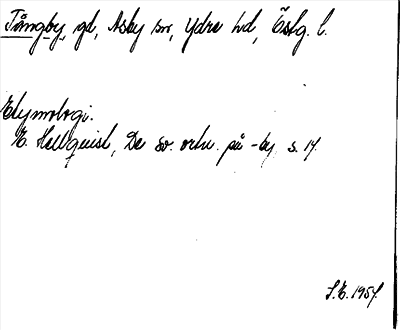 Tångby, gd, Asby sn, Ydre hd, Östg. l.
Etymologi.
E. Hellquist, De sv. ortn. på -by s. 17.
S.E. 1957.